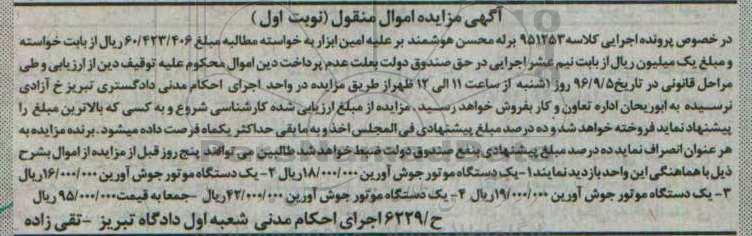 آگهی مزایده اموال منقول (نوبت اول)
در خصوص پرونده اجرایی کلاسه ۹۵۱۲۵۳ برله محسن هوشمند بر علیه امین ابزار به خواسته مطالبه مبلغ ۶۰/۴۲۳/۴۰۶ ریال از بابت خواسته
و مبلغ یک میلیون ریال از بابت نیم عشر اجرایی در حق صندوق دولت بعلت عدم پرداخت دین اموال محکوم علیه توقیف دین از ارزیابی و طی
مراحل قانونی در تاریخ ۹۶/۹/۵ روز (شنبه از ساعت ۱۱ الی ۱۲ ظهر از طریق مزایده در واحد اجرای احکام مدنی دادگستری تبریز خ آزادی
نرسیده به ابوریحان اداره تعاون و کار بفروش خواهد رسید. مزایده از مبلغ ارزیابی شده کارشناسی شروع و به کسی که بالاترین مبلغ را
پیشنهاد نماید فروخته خواهد شد و ده درصد مبلغ پیشنهادی فی المجلس اخذ و به مابقی حداکثر یکماه فرصت داده میشود. برنده مزایده به
هر عنوان انصراف نماید ده درصد مبلغ پیشنهادی بنفع صندوق دولت ضبط خواهد شد طالبین می توانند پنج روز قبل از مزایده از اموال بشرح
ذیل با هماهنگی این واحد بازدید نمایند ۱- یک دستگاه موتور جوش آورین ۱۸/۰۰۰/۰۰۰ ریال ۲- یک دستگاه موتور جوش آورین ۱۶/۰۰۰/۰۰۰ ریال
۳- یک دستگاه موتور جوش آورین ۱۹/۰۰۰/۰۰۰ ریال ۴- یک دستگاه موتور جوش آورین ۴۲/۰۰۰/۰۰۰ ریال - جمعا به قیمت ۹۵/۰۰۰/۰۰۰ ریال
ح/۶۲۲۹ اجرای احکام مدنی شعبه اول دادگاه تبریز - تقی زاده